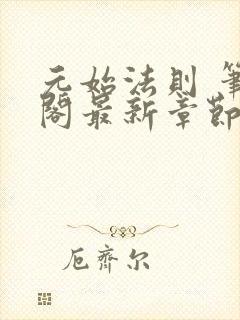 元始法則 筆
閣最新章節
厄齊尔